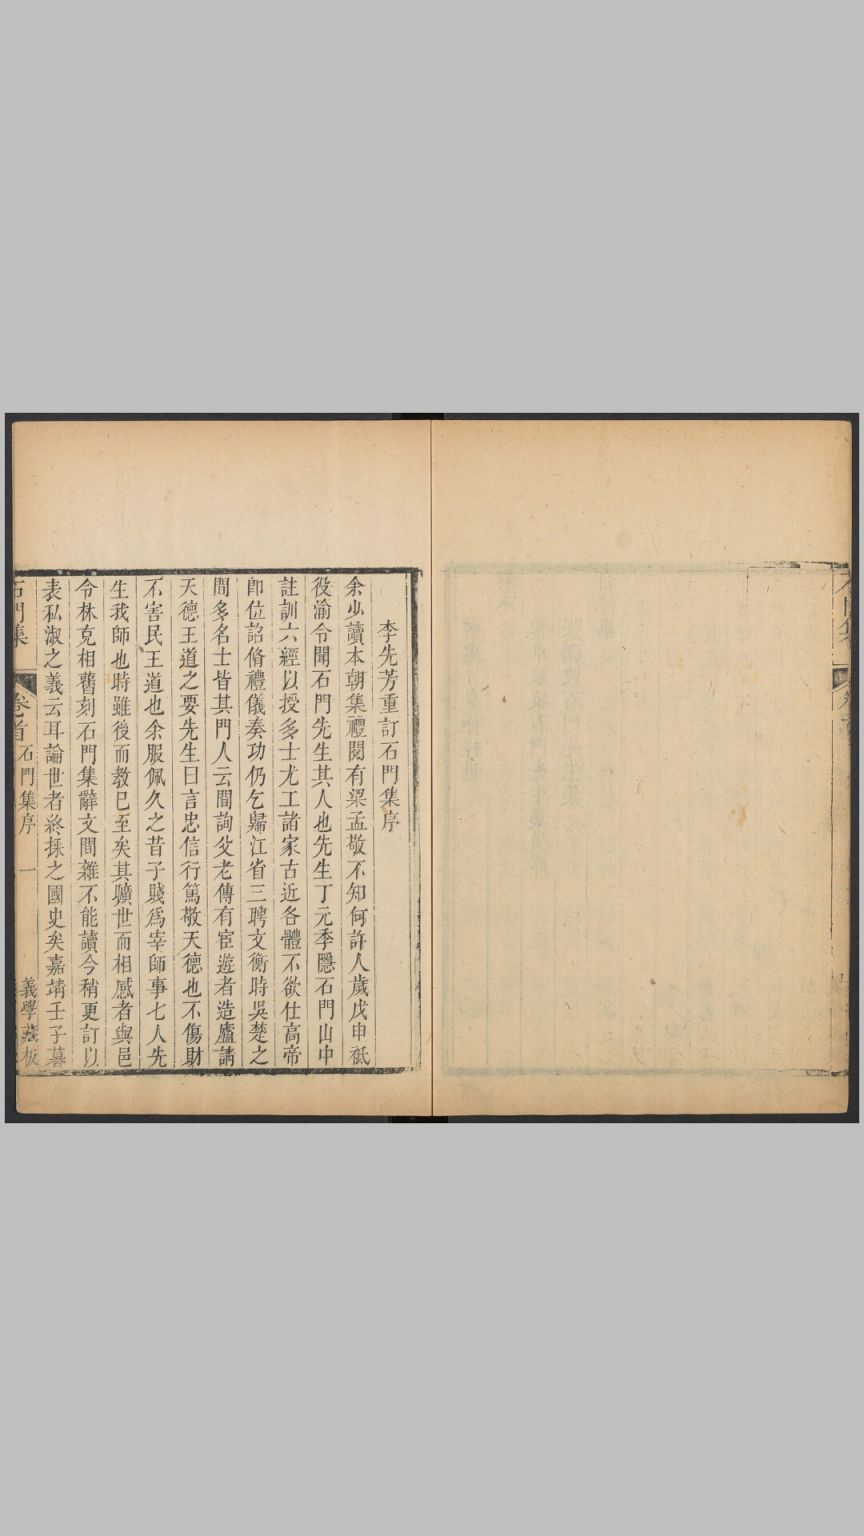 李先芳重訂石門集序
余少讀本朝集禮閱有梁孟敬不知何許人歲戊申祗
役渝令聞石門先生其人也先生丁元季隱石門山中
註訓六經以授多士尤工諸家古近各體不欲仕高帝
卽位詔脩禮儀奏功仍乞歸江省三聘文衡時吳楚之
間多名士皆其門人云間詢父老傳有宦遊者造廬請
天德王道之要先生曰言忠信行篤敬天德也不傷財
不害民王道也余服佩久之昔子賤爲宰師事七人先
生我師也時雖後而教已至矣其曠世而相感者與邑
令林克相舊刻石門集辭文間雜不能讀今稍更訂以
表私淑之義云耳論世者終採之國史矣嘉靖壬子暮
石門集 卷首 石門集序 一 義學藏板